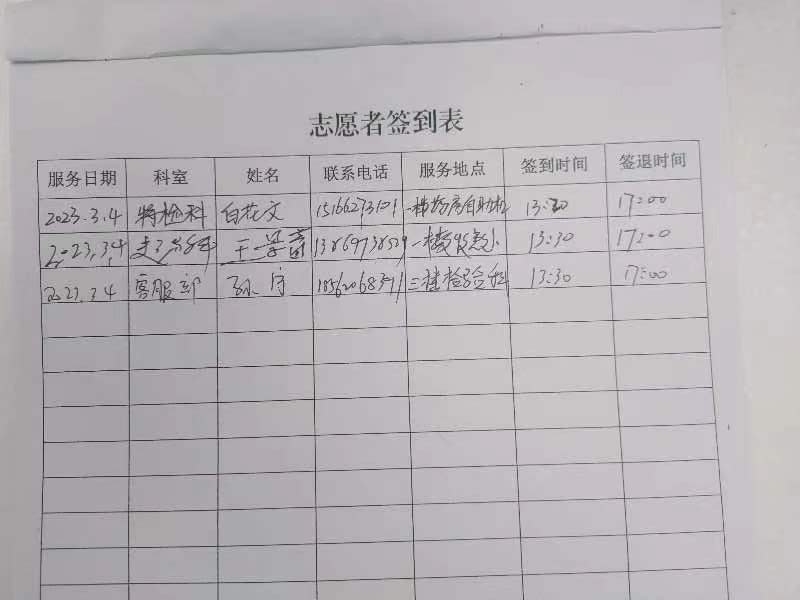 志愿者签到表
服务日期 科室 姓名 联系电话 服务地点 签到时间 签退时间
2023.3.4 特检科 白花文 一楼药房自助机 13:30 17:00
2023.3.4 王 一楼 13:30 17:00
2023.3.4 客服部 孙 三楼检验科 13:30 17:00